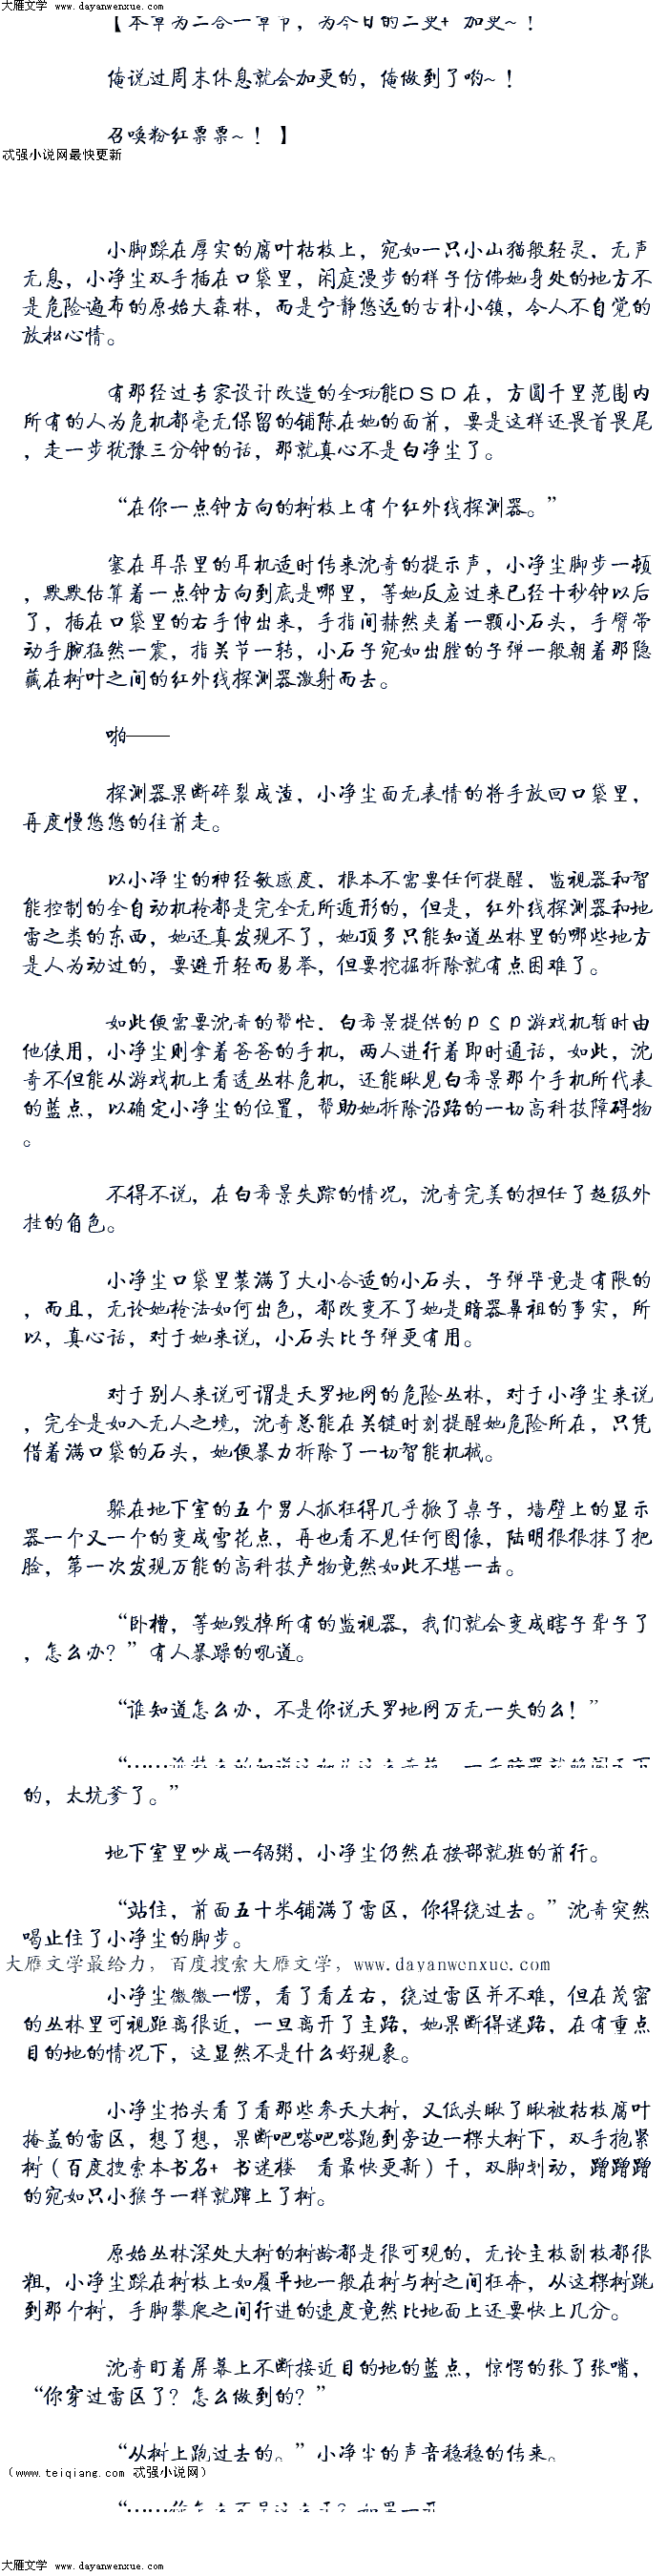 大雁文学 www.dayanwenxue.com
【本章为二合一章节，为今日的二更+ 加更~！
俺说过周末休息就会加更的，俺做到了哟~！
召唤粉红票票~！】
忒强小说网最快更新
小脚踩在厚实的腐叶枯枝上，宛如一只小山猫般轻灵．无声
无息，小净尘双手插在口袋里，闲庭漫步的样子仿佛她身处的地方不
是危险遍布的原始大森林，而是宁静悠远的古朴小镇，令人不自觉的
放松心情。
有那经过专家设计改造的全功能PSP在，方圆千里范围内
所有的人为危机都毫无保留的铺陈在她的面前，要是这样还畏首畏尾
，走一步犹豫三分钟的话，那就真心不是白净尘了。
“在你一点钟方向的树枝上有个红外线探测器。”
塞在耳朵里的耳机适时传来沈奇的提示声，小净尘脚步一顿
，默默估算着一点钟方向到底是哪里，等她反应过来已经十秒钟以后
了，插在口袋里的右手伸出来，手指间赫然夹着一颗小石头，手臂带
动手腕猛然一震，指关节一转，小石子宛如出膛的子弹一般朝着那隐
藏在树叶之间的红外线探测器激射而去。
啪——
探测器果断碎裂成渣，小净尘面无表情的将手放回口袋里，
再度慢悠悠的往前走。
以小净尘的神经敏感度．根本不需要任何提醒．监视器和智
能控制的全自动机枪都是完全无所遁形的，但是，红外线探测器和地
雷之类的东西，她还真发现不了，她顶多只能知道丛林里的哪些地方
是人为动过的，要避开轻而易举，但要挖掘拆除就有点困难了。
如此便需要沈奇的帮忙．白希景提供的PSP游戏机暂时由
他使用，小净尘则拿着爸爸的手机，两人进行着即时通话，如此，沈
奇不但能从游戏机上看透丛林危机，还能瞅见白希景那个手机所代表
的蓝点，以确定小净尘的位置，帮助她拆除沿路的一切高科技障碍物
。
不得不说，在白希景失踪的情况，沈奇完美的担任了超级外
挂的角色。
小净尘口袋里装满了大小合适的小石头，子弹毕竟是有限的
，而且，无论她枪法如何出色，都改变不了她是暗器鼻祖的事实，所
以，真心话，对于她来说，小石头比子弹更有用。
对于别人来说可谓是天罗地网的危险丛林，对于小净尘来说
，完全是如入无人之境，沈奇总能在关键时刻提醒她危险所在，只凭
借着满口袋的石头，她便暴力拆除了一切智能机械。
躲在地下室的五个男人抓狂得几乎掀了桌子，墙壁上的显示
器一个又一个的变成雪花点，再也看不见任何图像，陆明狠狠抹了把
脸，第一次发现万能的高科技产物竟然如此不堪一击。
“卧槽，等她毁掉所有的监视器，我们就会变成瞎子聋子了
，怎么办？”有人暴躁的吼道。
“谁知道怎么办，不是你说天罗地网万无一失的么！”
的，太坑爹了。”
地下室里吵成一锅粥，小净尘仍然在按部就班的前行。
“站住，前面五十米铺满了雷区，你得绕过去。”沈奇突然
喝止住了小净尘的脚步。
大雁文学最给力，百度搜索大雁文学，www.dayanwenxue.com
小净尘微微一愣，看了看左右，绕过雷区并不难，但在茂密
的丛林里可视距离很近，一旦离开了主路，她果断得迷路，在有重点
目的地的情况下，这显然不是什么好现象。
小净尘抬头看了看那些参天大树，又低头瞅了瞅被枯枝腐叶
掩盖的雷区，想了想，果断吧嗒吧嗒跑到旁边一棵大树下，双手抱紧
树（百度搜索本书名+ 书迷楼　看最快更新）干，双脚划动，蹭蹭蹭
的宛如只小猴子一样就蹿上了树。
原始丛林深处大树的树龄都是很可观的，无论主枝副枝都很
粗，小净尘踩在树枝上如履平地一般在树与树之间狂奔，从这棵树跳
到那个树，手脚攀爬之间行进的速度竟然比地面上还要快上几分。
沈奇盯着屏幕上不断接近目的地的蓝点，惊愕的张了张嘴，
“你穿过雷区了？怎么做到的？”
“从树上跑过去的。”小净尘的声音稳稳的传来。
（www.teiqiang.com 忒强小说网）
大雁文学 www.dayanwenxue.com